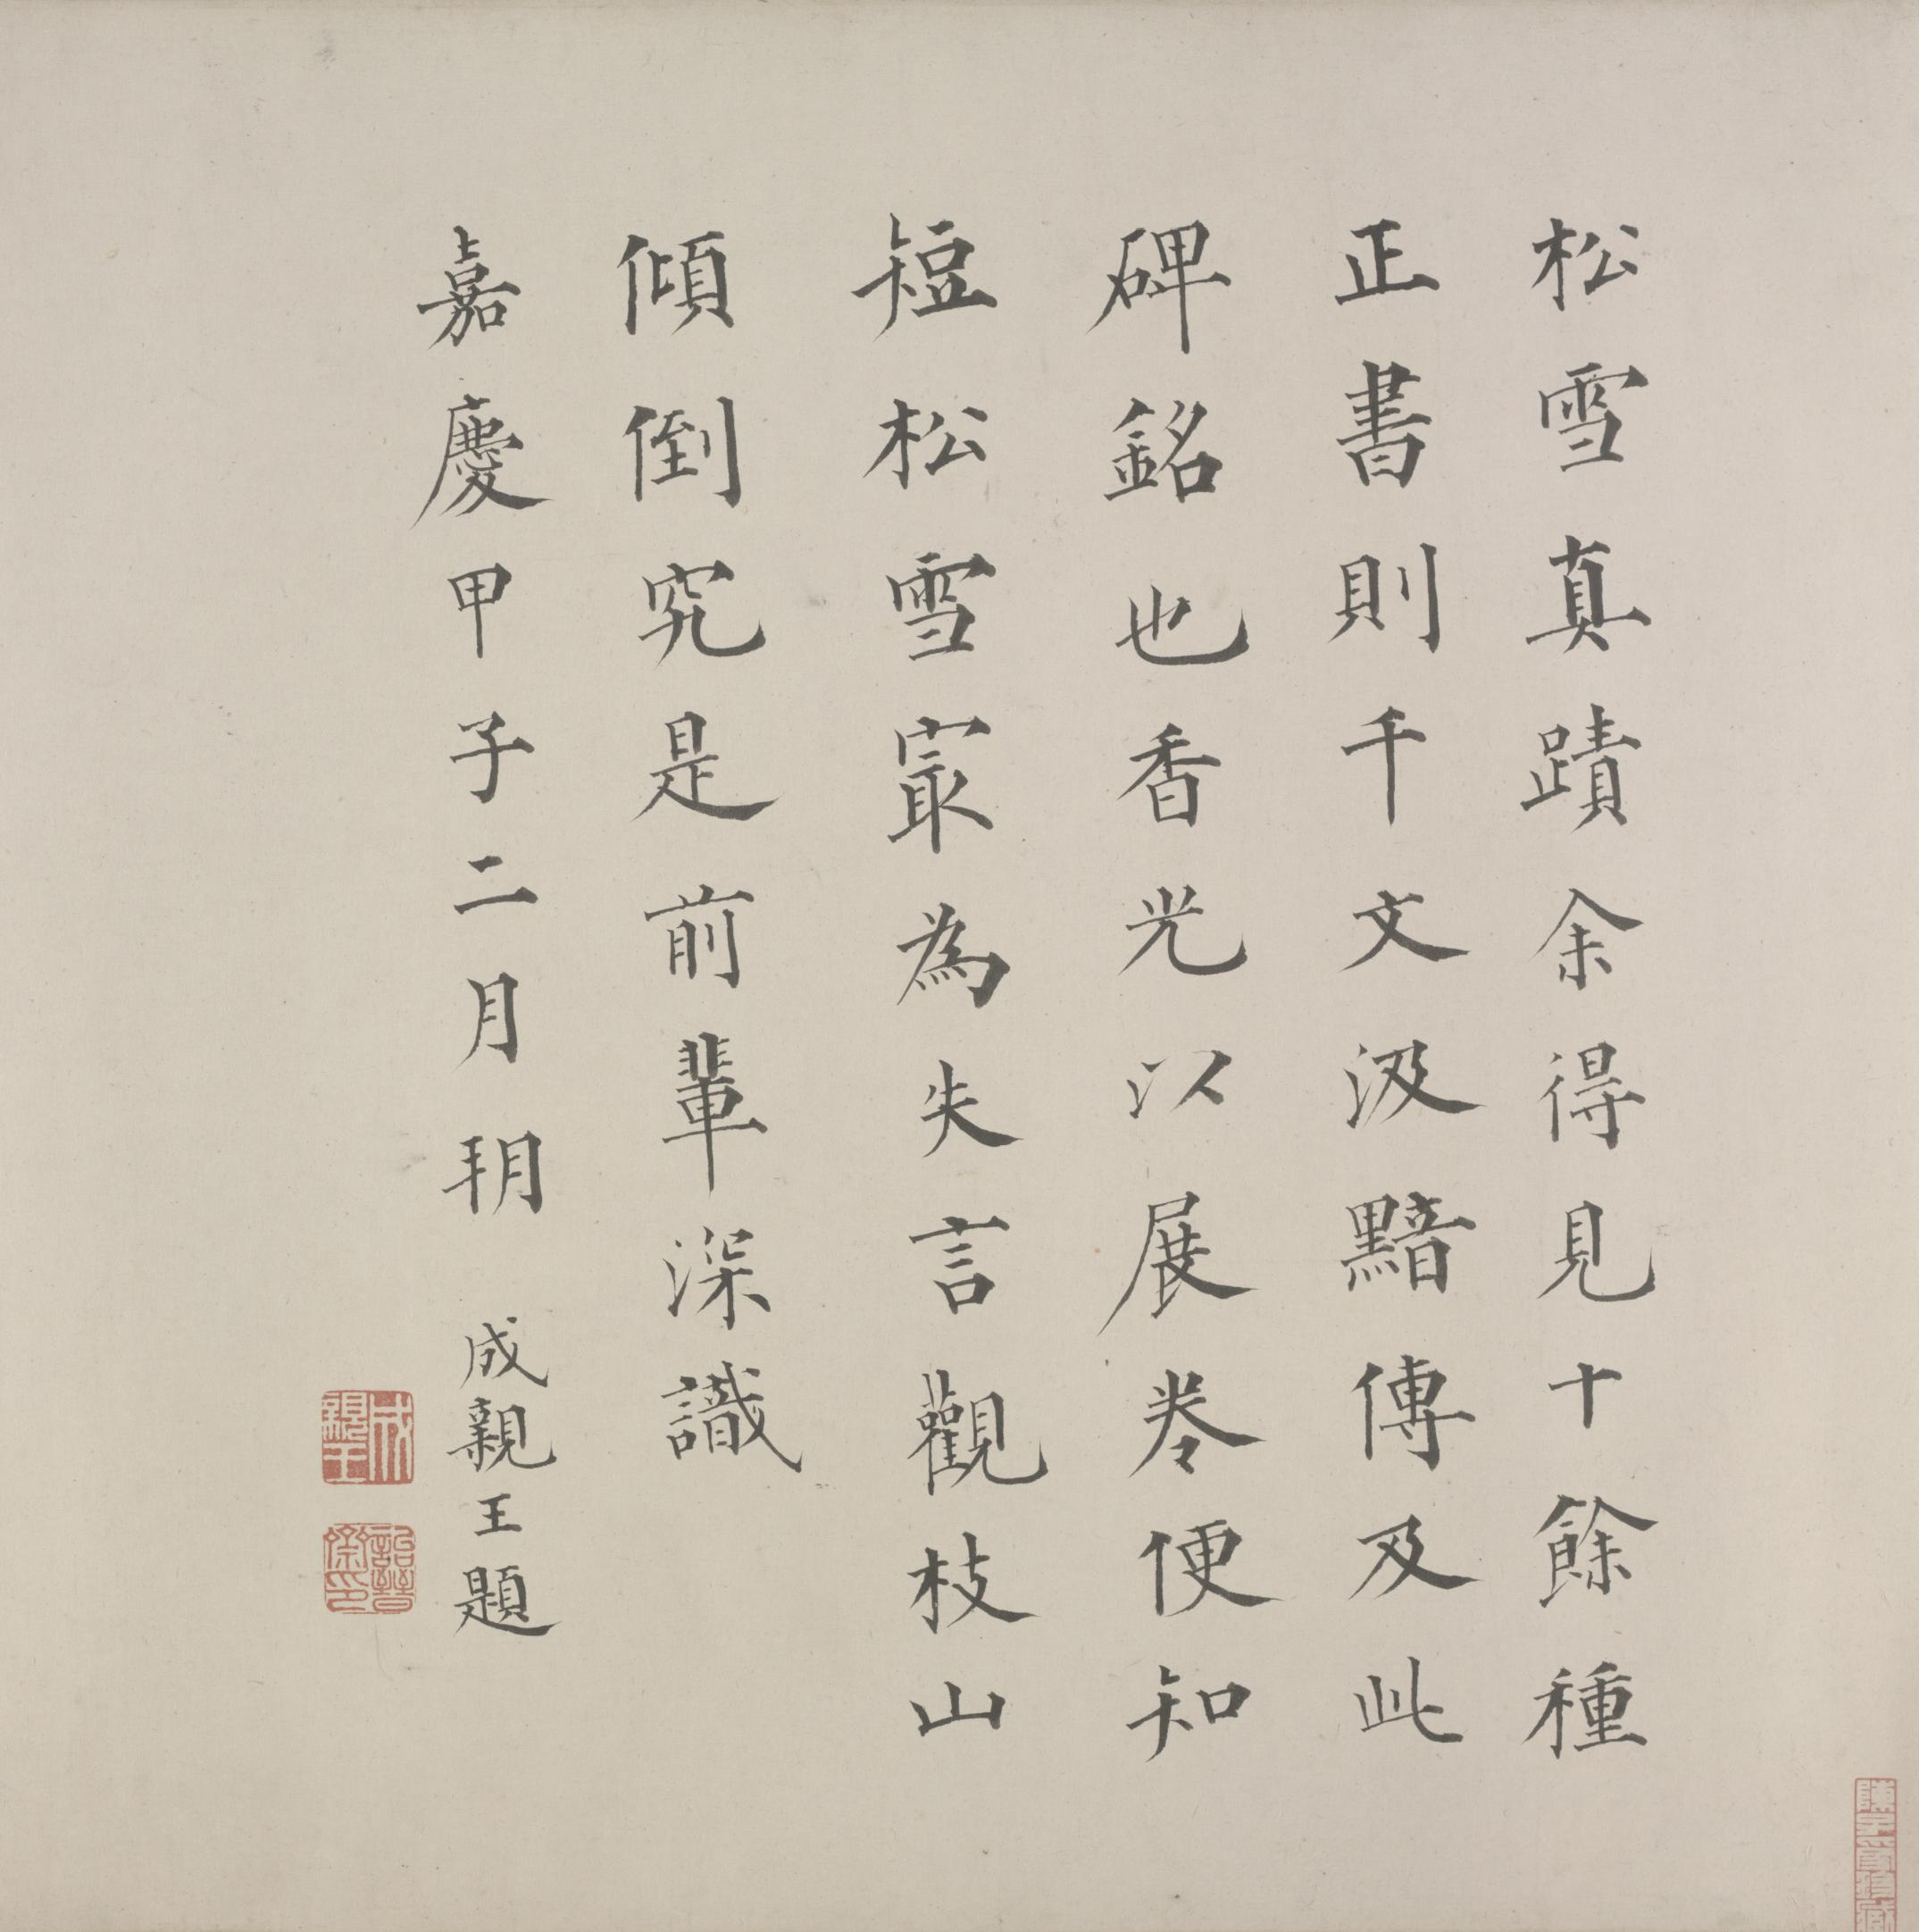 松雪真蹟余得見十餘種
正書則千文汲黯傳及此
碑銘也香光以展卷便知
短松雪寂為失言觀枝山
傾倒究是前輩深識
嘉慶甲子二月朔 成親王題
成親王
詒晉齋印